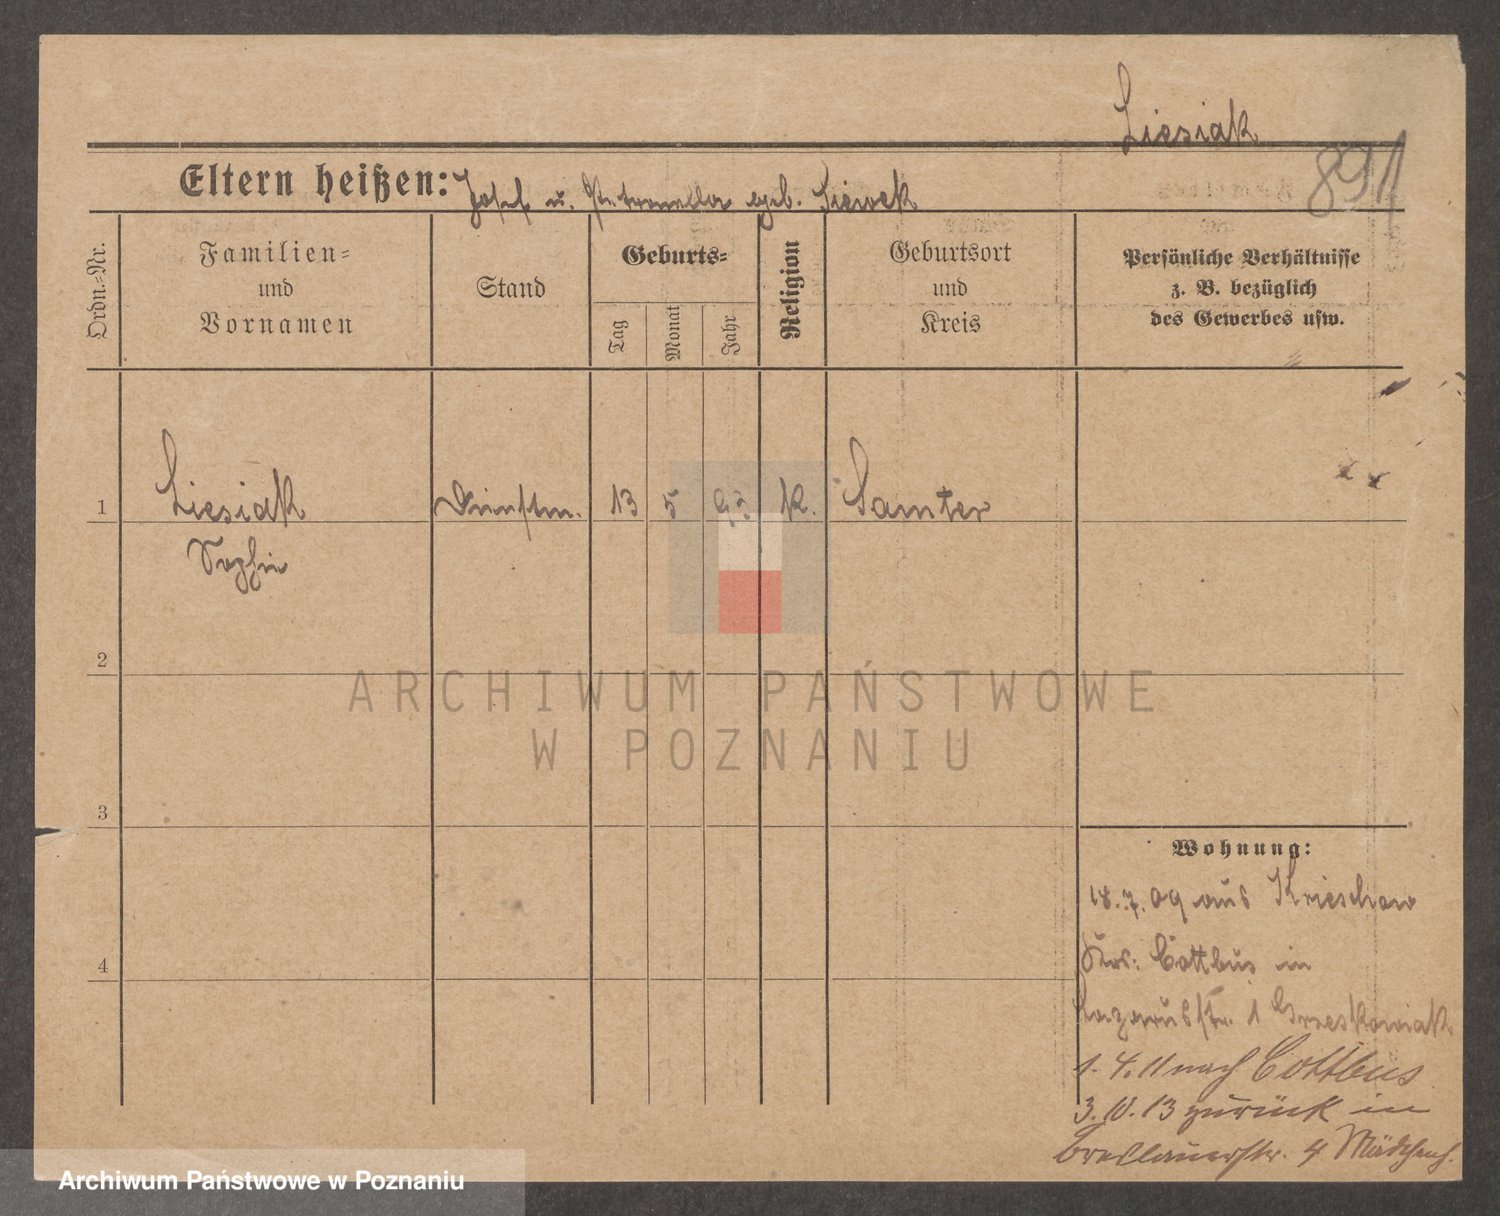 Liesiak
891
Eltern heißen: Josef u. Petronella geb. Siewek
Ordn.=Nr.
Familien=
und
Vornamen
Stand
Geburts=
Tag
Monat
Jahr
Religion
Geburtsort
und
Kreis
Persönliche Verhältnisse
z. B. bezüglich
des Gewerbes usw.
1 Liesiak Dienstm. 13 5 K. Samter
Sophie
2
3
4
Wohnung:
18.7.09 aus Krieschow
Krs: Cottbus in
Lazarusstr. 1 Grzeskowiak
1.4.11 nach Cottbus
3.10.13 zurück in
Breslauerstr. 4 Mädchenh.
ARCHIWUM PAŃSTWOWE
W POZNANIU
Archiwum Państwowe w Poznaniu